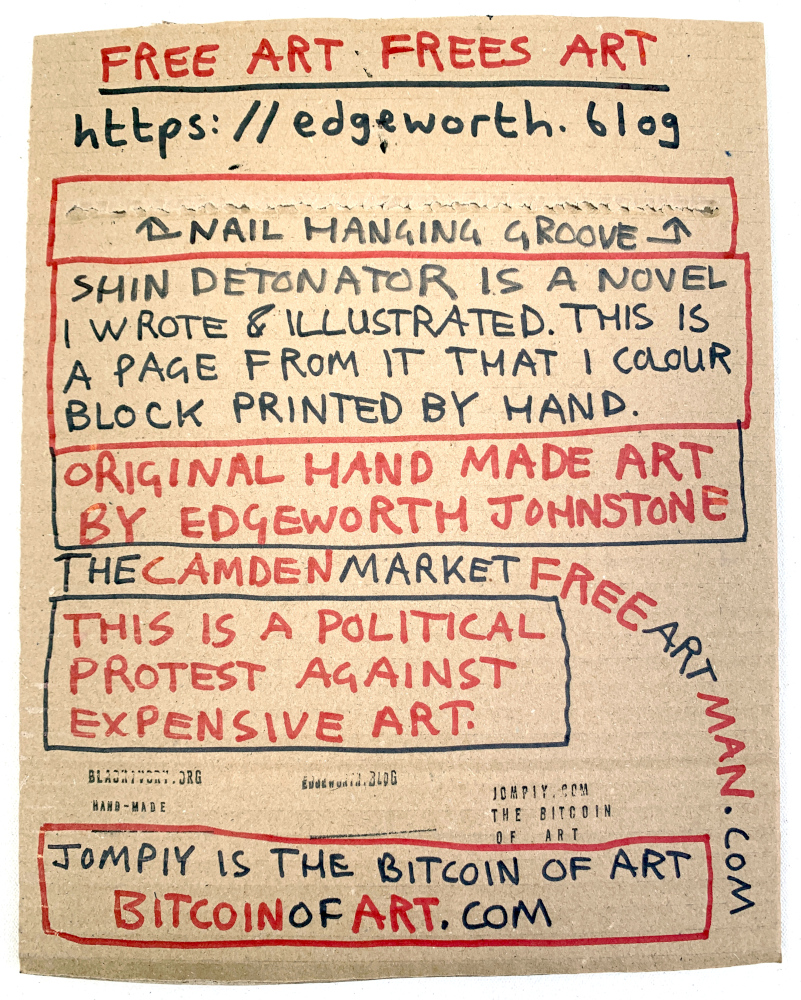 FREE ART FREES ART
https://edgeworth.blog
NAIL HANGING GROOVE
SHIN DETONATOR IS A NOVEL
I WROTE & ILLUSTRATED. THIS IS
A PAGE FROM IT THAT I COLOUR
BLOCK PRINTED BY HAND.
ORIGINAL HAND MADE ART
BY EDGEWORTH JOHNSTONE
THECAMDENMARKETFREEARTMAN.COM
THIS IS A POLITICAL
PROTEST AGAINST
EXPENSIVE ART.
BLACKIVORY.ORG
HAND-MADE
EDGEWORTH.BLOG
JOMPIY.COM
THE BITCOIN
OF ART
JOMPIY IS THE BITCOIN OF ART
BITCOINOFART.COM